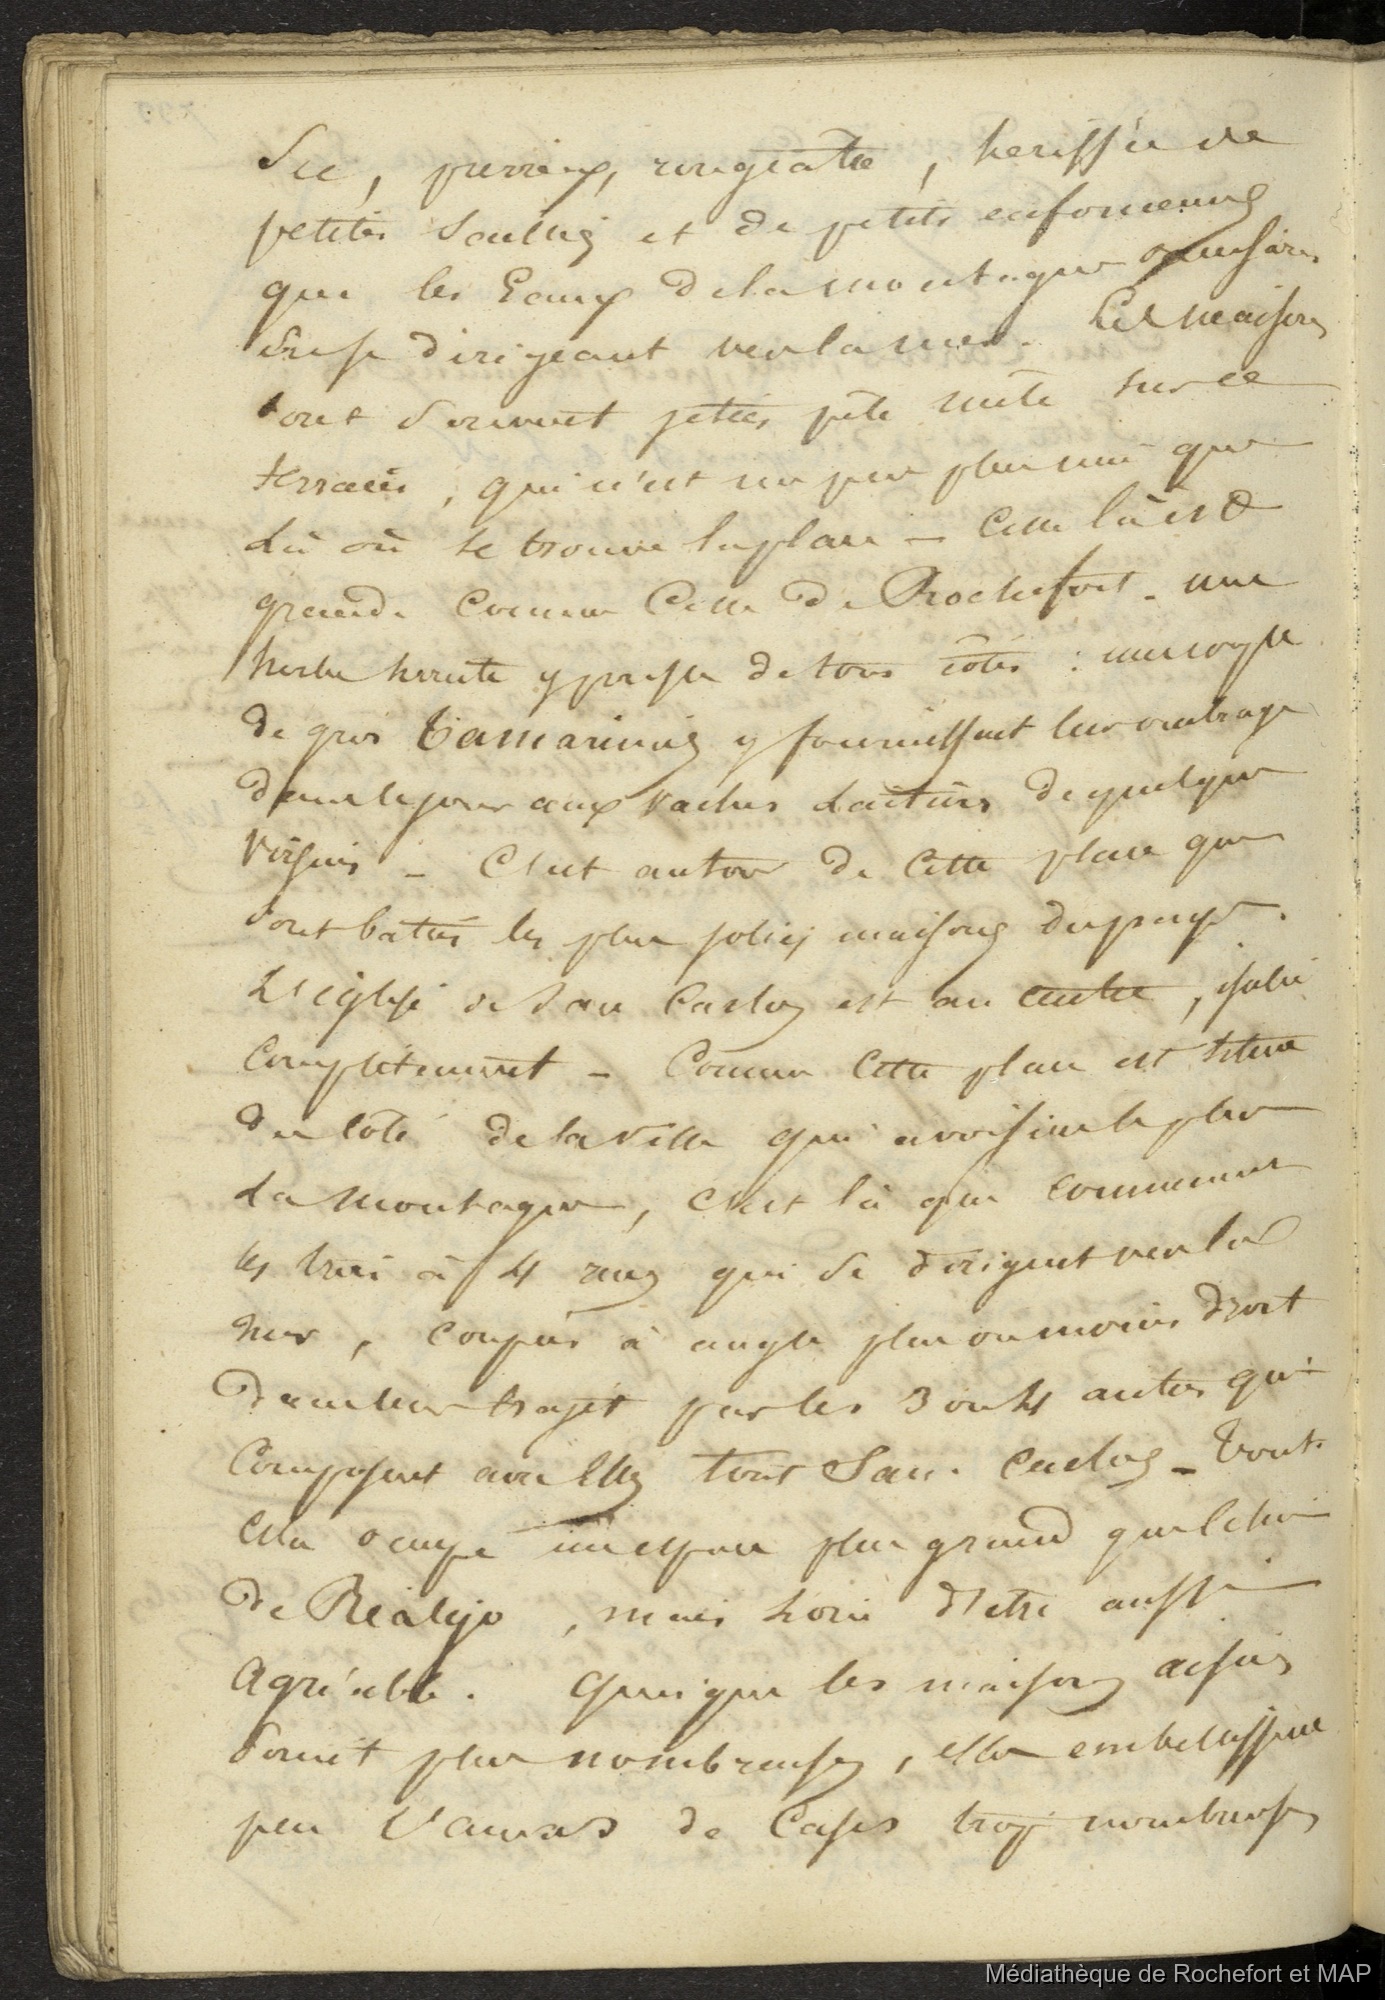 Sec, pierreux, rougeatre, herissée de
petites Saillies et de petits enfoncemens
que les Eaux de la montagne
en se dirigeant vers la mer. Les maisons
sont souvent jetées pêle mêle sur ce
terrain, qui n'est un peu plus uni que
là où se trouve la place – Celle là est
grande comme Celle de Rochefort. une
herbe courte y pousse de tous côtés : une couple
de gros Tamarinies y fournissent leur ombrage
dans le jour aux vaches laitières de quelques
voisins – C'est autour de Cette place que
sont baties les plus jolies maisons du pays.
L'église de San Carlos est au centre, isolée
Complètement – Comme Cette place est située
du côté de la ville qui avoisine le plus
la montagne, C'est là que commencent
les trois à 4 rues qui se dirigent vers la
mer, coupées à angle plus ou moins droit
dans leur trajet par les 3 ou 4 autres qui
Composent avec Elles tout San. Carlos – Tout
cela occupe un espace plus grand que celui
de Réalejo, mais loin d'etre aussi
agréable. Quoique les maisons aisées
soient plus nombreuses, elles embellissent
peu l'amas de Cases trop nombreuses
Médiathèque de Rochefort et MAP